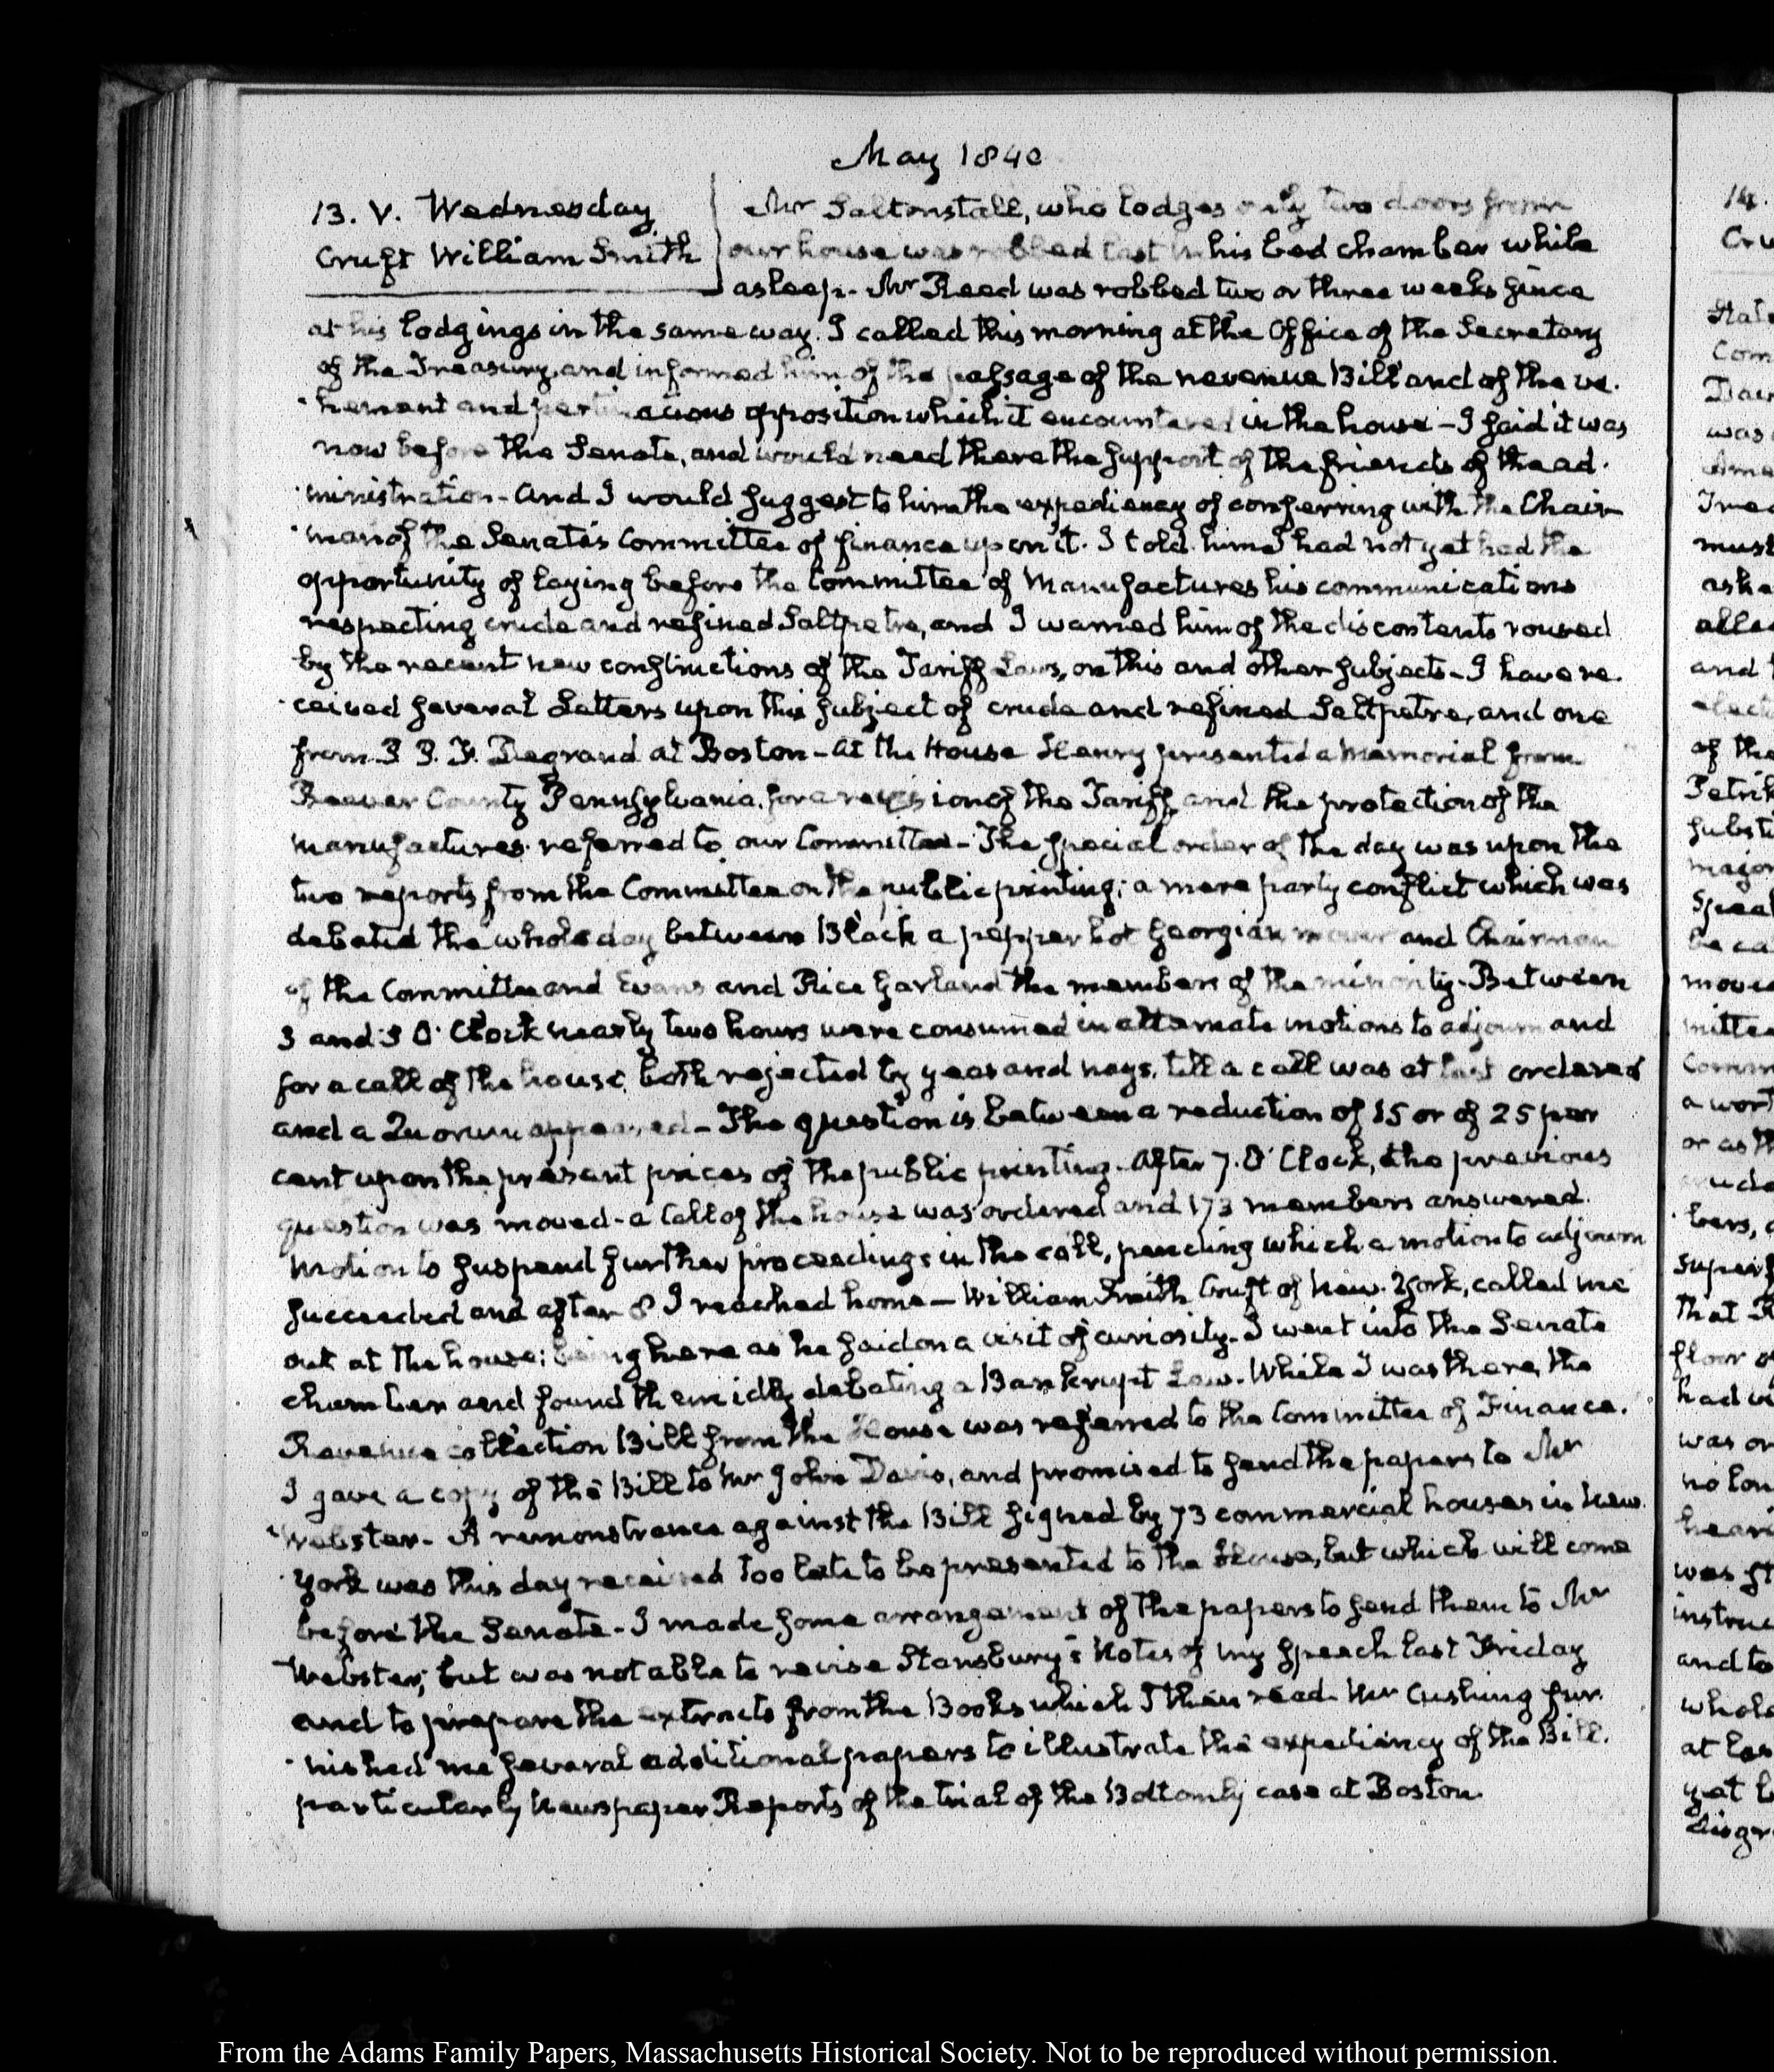 May 1840
13. V. Wednesday
Cruft William Smith
Mr Saltonstall, who lodges only two doors from
our house was robbed last in his bed chamber while
asleep. Mr Reed was robbed two or three weeks since
at his lodgings in the same way. I called this morning at the Office of the Secretary
of the Treasury, and informed him of the passage of the revenue Bill and of the ve-
hement and pertinacious opposition which it encountered in the house - I said it was
now before the Senate, and would need there the support of the friends of the ad-
ministration - And I would suggest to him the expediency of conferring with the Chair-
man of the Senate's Committee of finance upon it. I told him I had not yet had the
opportunity of laying before the Committee of Manufactures his communications
respecting crude and refined Saltpetre, and I warned him of the discontents roused
by the recent new constructions of the Tariff Laws, on this and other subjects - I have re-
ceived several Letters upon this subject of crude and refined Saltpetre, and one
from P. P. F. Degrand at Boston - At the House Henry presented a Memorial from
Beaver County Pennsylvania, for a revision of the Tariff and the protection of the
manufactures referred to our Committee - The special order of the day was upon the
two reports from the Committee on the public printing; a mere party conflict which was
debated the whole day between Black a pepper hot Georgian and Chairman
of the Committee and Evans and Rice Garland the members of the minority. Between
3 and 5 O'Clock nearly two hours were consumed in alternate motions to adjourn and
for a call of the house, both rejected by yeas and nays, till a call was at last ordered
and a Quorum appeared - The question is between a reduction of 15 or of 25 per
cent upon the present prices of the public printing. After 7. O'Clock, the previous
question was moved - a Call of the house was ordered and 173 members answered.
Motion to suspend further proceedings in the call, pending which a motion to adjourn
succeeded and after 8 I reached home - William Smith Cruft of New-York, called me
out at the house; being here as he said on a visit of curiosity. I went into the Senate
chamber and found them idly debating a Bankrupt Law. While I was there, the
Revenue collection Bill from the House was referred to the Committee of Finance.
I gave a copy of the Bill to Mr John Davis, and promised to send the papers to Mr
Webster. A remonstrance against the Bill signed by 73 commercial houses in New
York was this day received too late to be presented to the House, but which will come
before the Senate - I made some arrangement of the papers to send them to Mr
Webster; but was not able to revise Stansbury's Notes of my speech last Friday
and to prepare the extracts from the Books which I then read. Mr Cushing fur-
nished me several additional papers to illustrate the expediency of the Bill.
particularly Newspaper Reports of the trial of the Bottomly case at Boston.
From the Adams Family Papers, Massachusetts Historical Society. Not to be reproduced without permission.